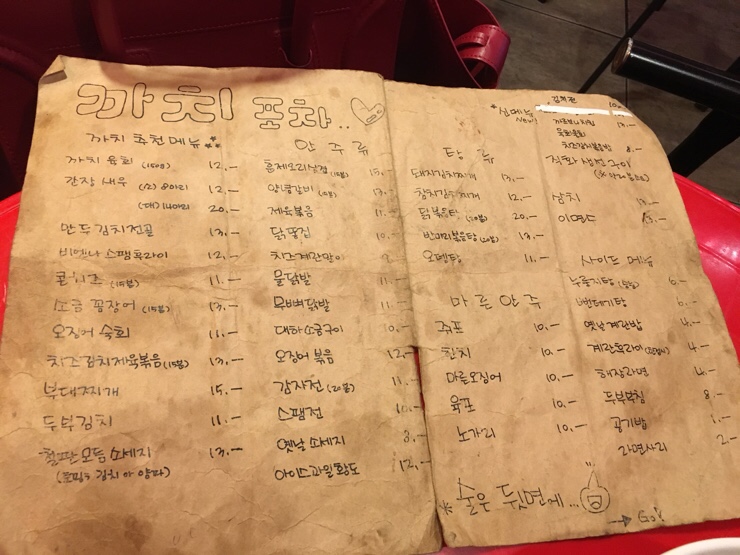 까치 포차..
까치 추천 메뉴
까치 육회 (150g) 12.-
간장 새우 (소) 8마리 12.-
(대) 14마리 20.-
만두김치전골 13.-
비엔나 스팸후라이 12.-
콘치즈 (15분) 11.-
소금 꼼장어 (15분) 13.-
오징어 숙회 11.-
치즈김치제육볶음 (15분) 13.-
부대찌개 15.-
두부김치 11.-
철판모듬소세지 13.-
안주류
훈제오리삼겹
양념갈비
제육볶음 11.-
닭똥집
치즈계란말이
물닭발 11.-
무뼈닭발 11.-
대하소금구이 10.-
오징어 볶음 12.-
감자전 (20분) 11.-
스팸전 10.-
옛날 소세지 8.-
아이스과일황도 12.-
탕류
돼지김치찌개 13.-
참치김치찌개 12.-
닭볶음탕 20.-
반마리볶음탕 13.-
오뎅탕 11.-
마른안주
쥐포 10.-
한치 10.-
마른오징어 10.-
육포 10.-
노가리 10.-
*신메뉴
New!
김치전 10.-
8.-
직화 생선구이
삼치
이면수 13.-
사이드 메뉴
누룽지탕
뻔데기탕 6.-
옛날계란밥 4.-
계란후라이 4.-
해장라면 4.-
두부부침 8.-
공기밥 1.-
라면사리 2.-
*술은 뒷면에...
→ Go!